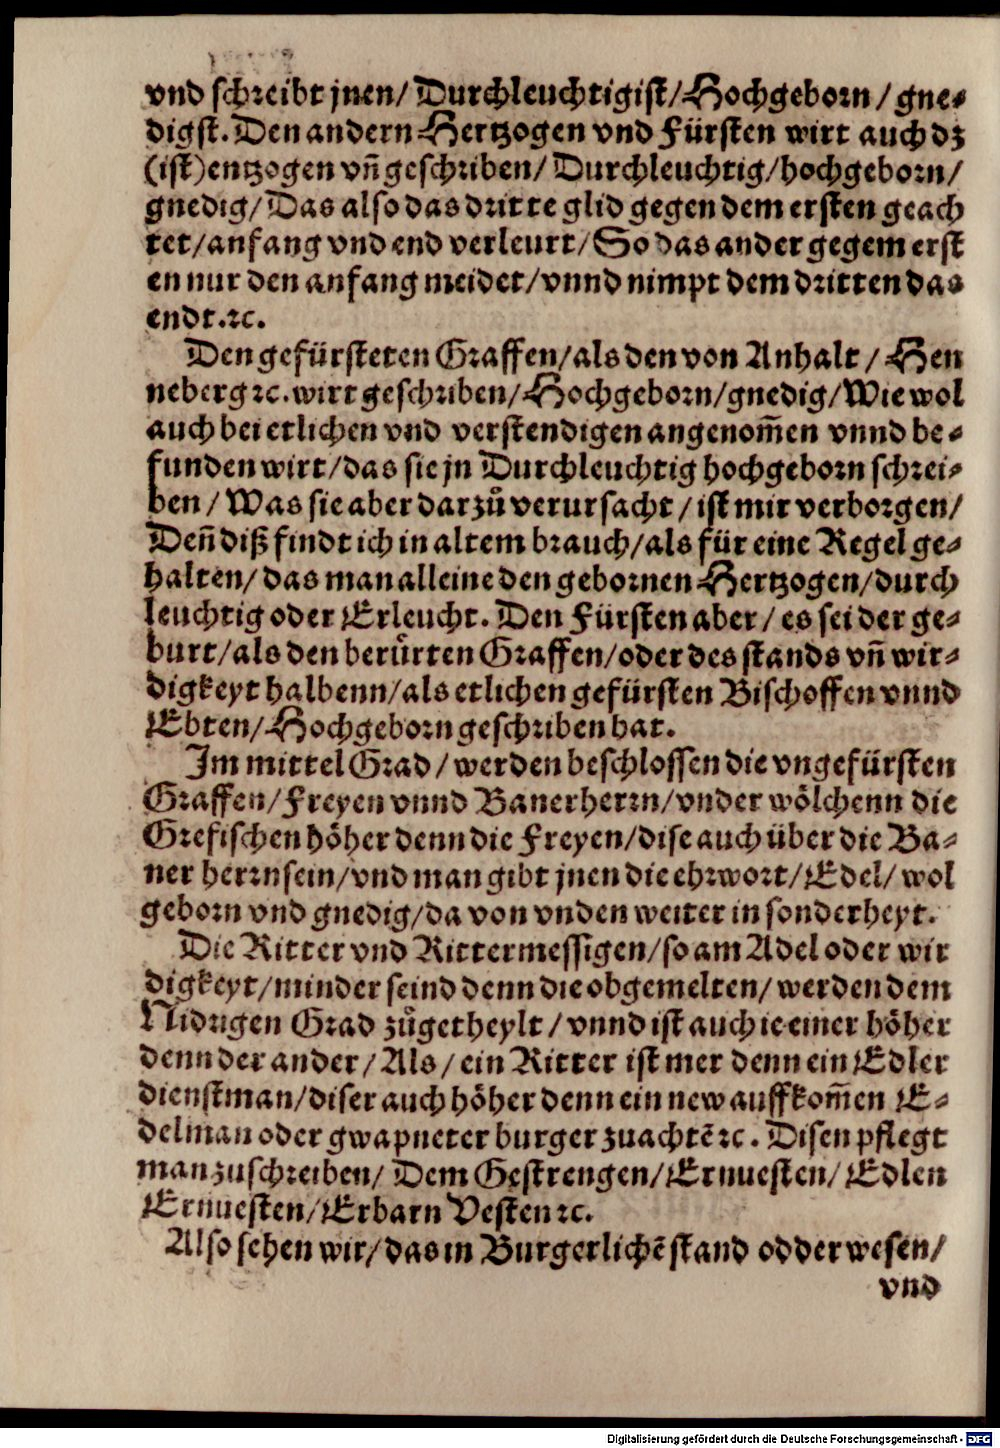 vnd schreibt jnen/ Durchleuchtigist/Hochgeborn / gne⸗
digst. Den andern Hertzogen vnd Fürsten wirt auch dz
(ist)entzogen vñ geschriben/ Durchleuchtig/hochgeborn/
gnedig/ Das also das dritte glid gegen dem ersten geach
tet/anfang vnd end verleurt/ So das ander gegem erst
en nur den anfang meidet/vnnd nimpt dem dritten das
endt.ꝛc.
Den gefürsteten Graffen/als den von Anhalt / Hen
neberg ꝛc. wirt geschriben/Hochgeborn/gnedig/Wie wol
auch bei etlichen vnd verstendigen angenom̄en vnnd be⸗
funden wirt/das sie jn Durchleuchtig hochgeborn schrei⸗
ben / Was sie aber darzů verursacht / ist mir verborgen/
Deñ diß findt ich in altem brauch/als für eine Regel ge⸗
halten/ das man alleine den gebornen Hertzogen/durch
leuchtig oder Erleucht. Den Fürsten aber / es sei der ge⸗
burt/als den berürten Graffen/oder des stands vñ wir⸗
digkeyt halbenn/als etlichen gefürsten Bischoffen vnnd
Ebten/Hochgeborn geschriben hat.
Im mittel Grad / werden beschlossen die vngefürsten
Graffen/Freyen vnnd Banerherrn/vnder wölchenn die
Grefischen höher denn die Freyen/dise auch über die Ba⸗
ner herrn sein/vnd man gibt jnen die ehrwort/Edel/ wol
geborn vnd gnedig/da von vnden weiter in sonderheyt.
Die Ritter vnd Rittermessigen/so am Adel oder wir
digkeyt/minder seind denn die obgemelten/ werden dem
Nidrigen Grad zůgetheylt / vnnd ist auch ie einer höher
denn der ander/ Als/ ein Ritter ist mer denn ein Edler
dienstman/diser auch höher denn ein new auffkom̄en E⸗
delman oder gwapneter burger zuachtē ꝛc. Disen pflegt
man zuschreiben/ Dem Gestrengen/Ernuesten/ Edlen
Ernuesten/Erbarn Vesten ꝛc.
Also sehen wir/das in Burgerlichē stand odder wesen/
vnd
Digitalisierung gefördert durch die Deutsche Forschungsgemeinschaft - DFG